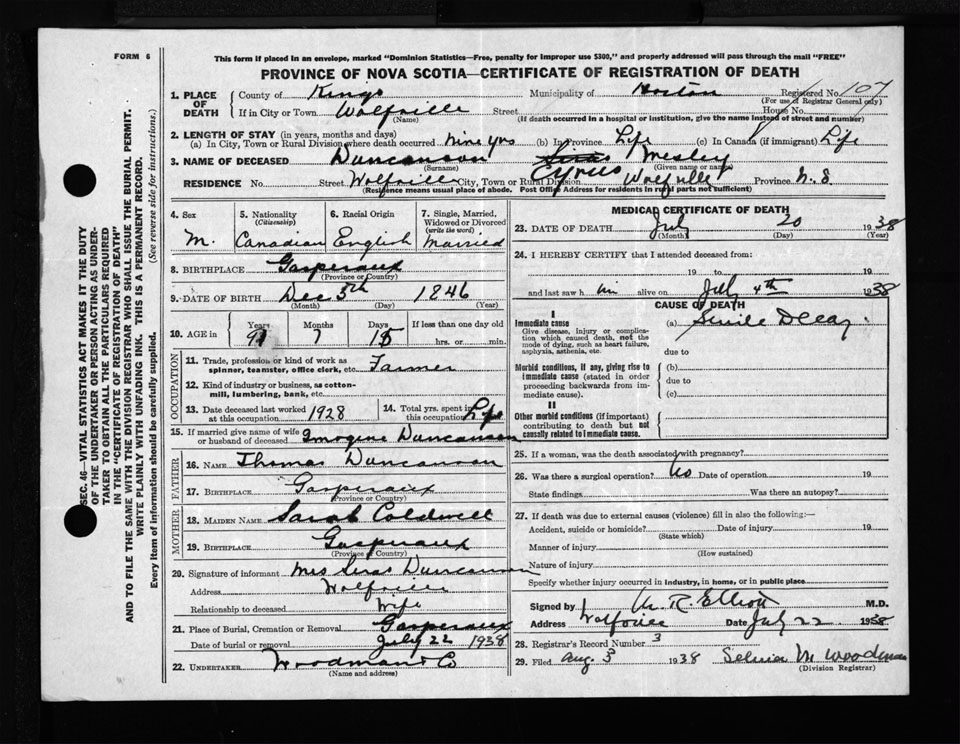 FORM 6
This form if placed in an envelope, marked "Dominion Statistics—Free, penalty for improper use $300," and properly addressed will pass through the mail "FREE"
PROVINCE OF NOVA SCOTIA—CERTIFICATE OF REGISTRATION OF DEATH
1. PLACE OF DEATH County of Kings Municipality of Horton Registered No. 107
(For use of Registrar General only)
If in City or Town Wolfville Street House No.
(Name) (If death occurred in a hospital or institution, give the name instead of street and number)
2. LENGTH OF STAY (in years, months and days)
(a) In City, Town or Rural Division where death occurred nine yrs (b) In Province Life (c) In Canada (if immigrant) Life
3. NAME OF DECEASED Duncanson Cyrus Wesley
(Surname) (Given name or names)
RESIDENCE No. Street Wolfville City, Town or Rural Division Wolfville Province N.S.
(Residence means usual place of abode. Post Office Address for residents in rural parts not sufficient)
4. Sex M.
5. Nationality (Citizenship) Canadian
6. Racial Origin English
7. Single, Married, Widowed or Divorced (write the word) Married
8. BIRTHPLACE Gaspereaux
(Province or Country)
9. DATE OF BIRTH Dec 5th 1846
(Month) (Day) (Year)
10. AGE in Years 91 Months 7 Days 15 If less than one day old
hrs. or min.
OCCUPATION
11. Trade, profession or kind of work as spinner, teamster, office clerk, etc. Farmer
12. Kind of industry or business, as cotton-mill, lumbering, bank, etc.
13. Date deceased last worked at this occupation 1928 14. Total yrs. spent in this occupation Life
15. If married give name of wife or husband of deceased Imogene Duncanson
FATHER
16. NAME Thomas Duncanson
17. BIRTHPLACE Gaspereaux
(Province or Country)
MOTHER
18. MAIDEN NAME Sarah Coldwell
19. BIRTHPLACE Gaspereaux
(Province or Country)
20. Signature of informant Mrs Siras Duncanson
Address Wolfville
Relationship to deceased Wife
21. Place of Burial, Cremation or Removal Gaspereaux
Date of burial or removal July 22 1938
22. UNDERTAKER Woodman & Co
(Name and address)
MEDICAL CERTIFICATE OF DEATH
23. DATE OF DEATH July 20 1938
(Month) (Day) (Year)
24. I HEREBY CERTIFY that I attended deceased from:
19 to 19
and last saw h im alive on July 4th 1938
CAUSE OF DEATH
I
Immediate cause (a) Senile Decay.
Give disease, injury or complication which caused death, not the mode of dying, such as heart failure, asphyxia, asthenia, etc.
due to
Morbid conditions, if any, giving rise to immediate cause (stated in order proceeding backwards from immediate cause). (b)
due to
(c)
II
Other morbid conditions (if important) contributing to death but not causally related to immediate cause.
25. If a woman, was the death associated with pregnancy?
26. Was there a surgical operation? No Date of operation 19
State findings Was there an autopsy?
27. If death was due to external causes (violence) fill in also the following:—
Accident, suicide or homicide? Date of injury 19
(State which)
Manner of injury
(How sustained)
Nature of injury
Specify whether injury occurred in industry, in home, or in public place
Signed by M. R. Elliott M.D.
Address Wolfville Date July 22 1938
28. Registrar's Record Number 3
29. Filed Aug. 3 1938 Selina M Woodman
(Division Registrar)
SEC. 46—VITAL STATISTICS ACT MAKES IT THE DUTY
OF THE UNDERTAKER OR PERSON ACTING AS UNDER-
TAKER TO OBTAIN ALL THE PARTICULARS REQUIRED
IN THE "CERTIFICATE OF REGISTRATION OF DEATH"
AND TO FILE THE SAME WITH THE DIVISION REGISTRAR WHO SHALL ISSUE THE BURIAL PERMIT.
WRITE PLAINLY WITH UNFADING INK. THIS IS A PERMANENT RECORD.
Every item of information should be carefully supplied. (See reverse side for instructions.)